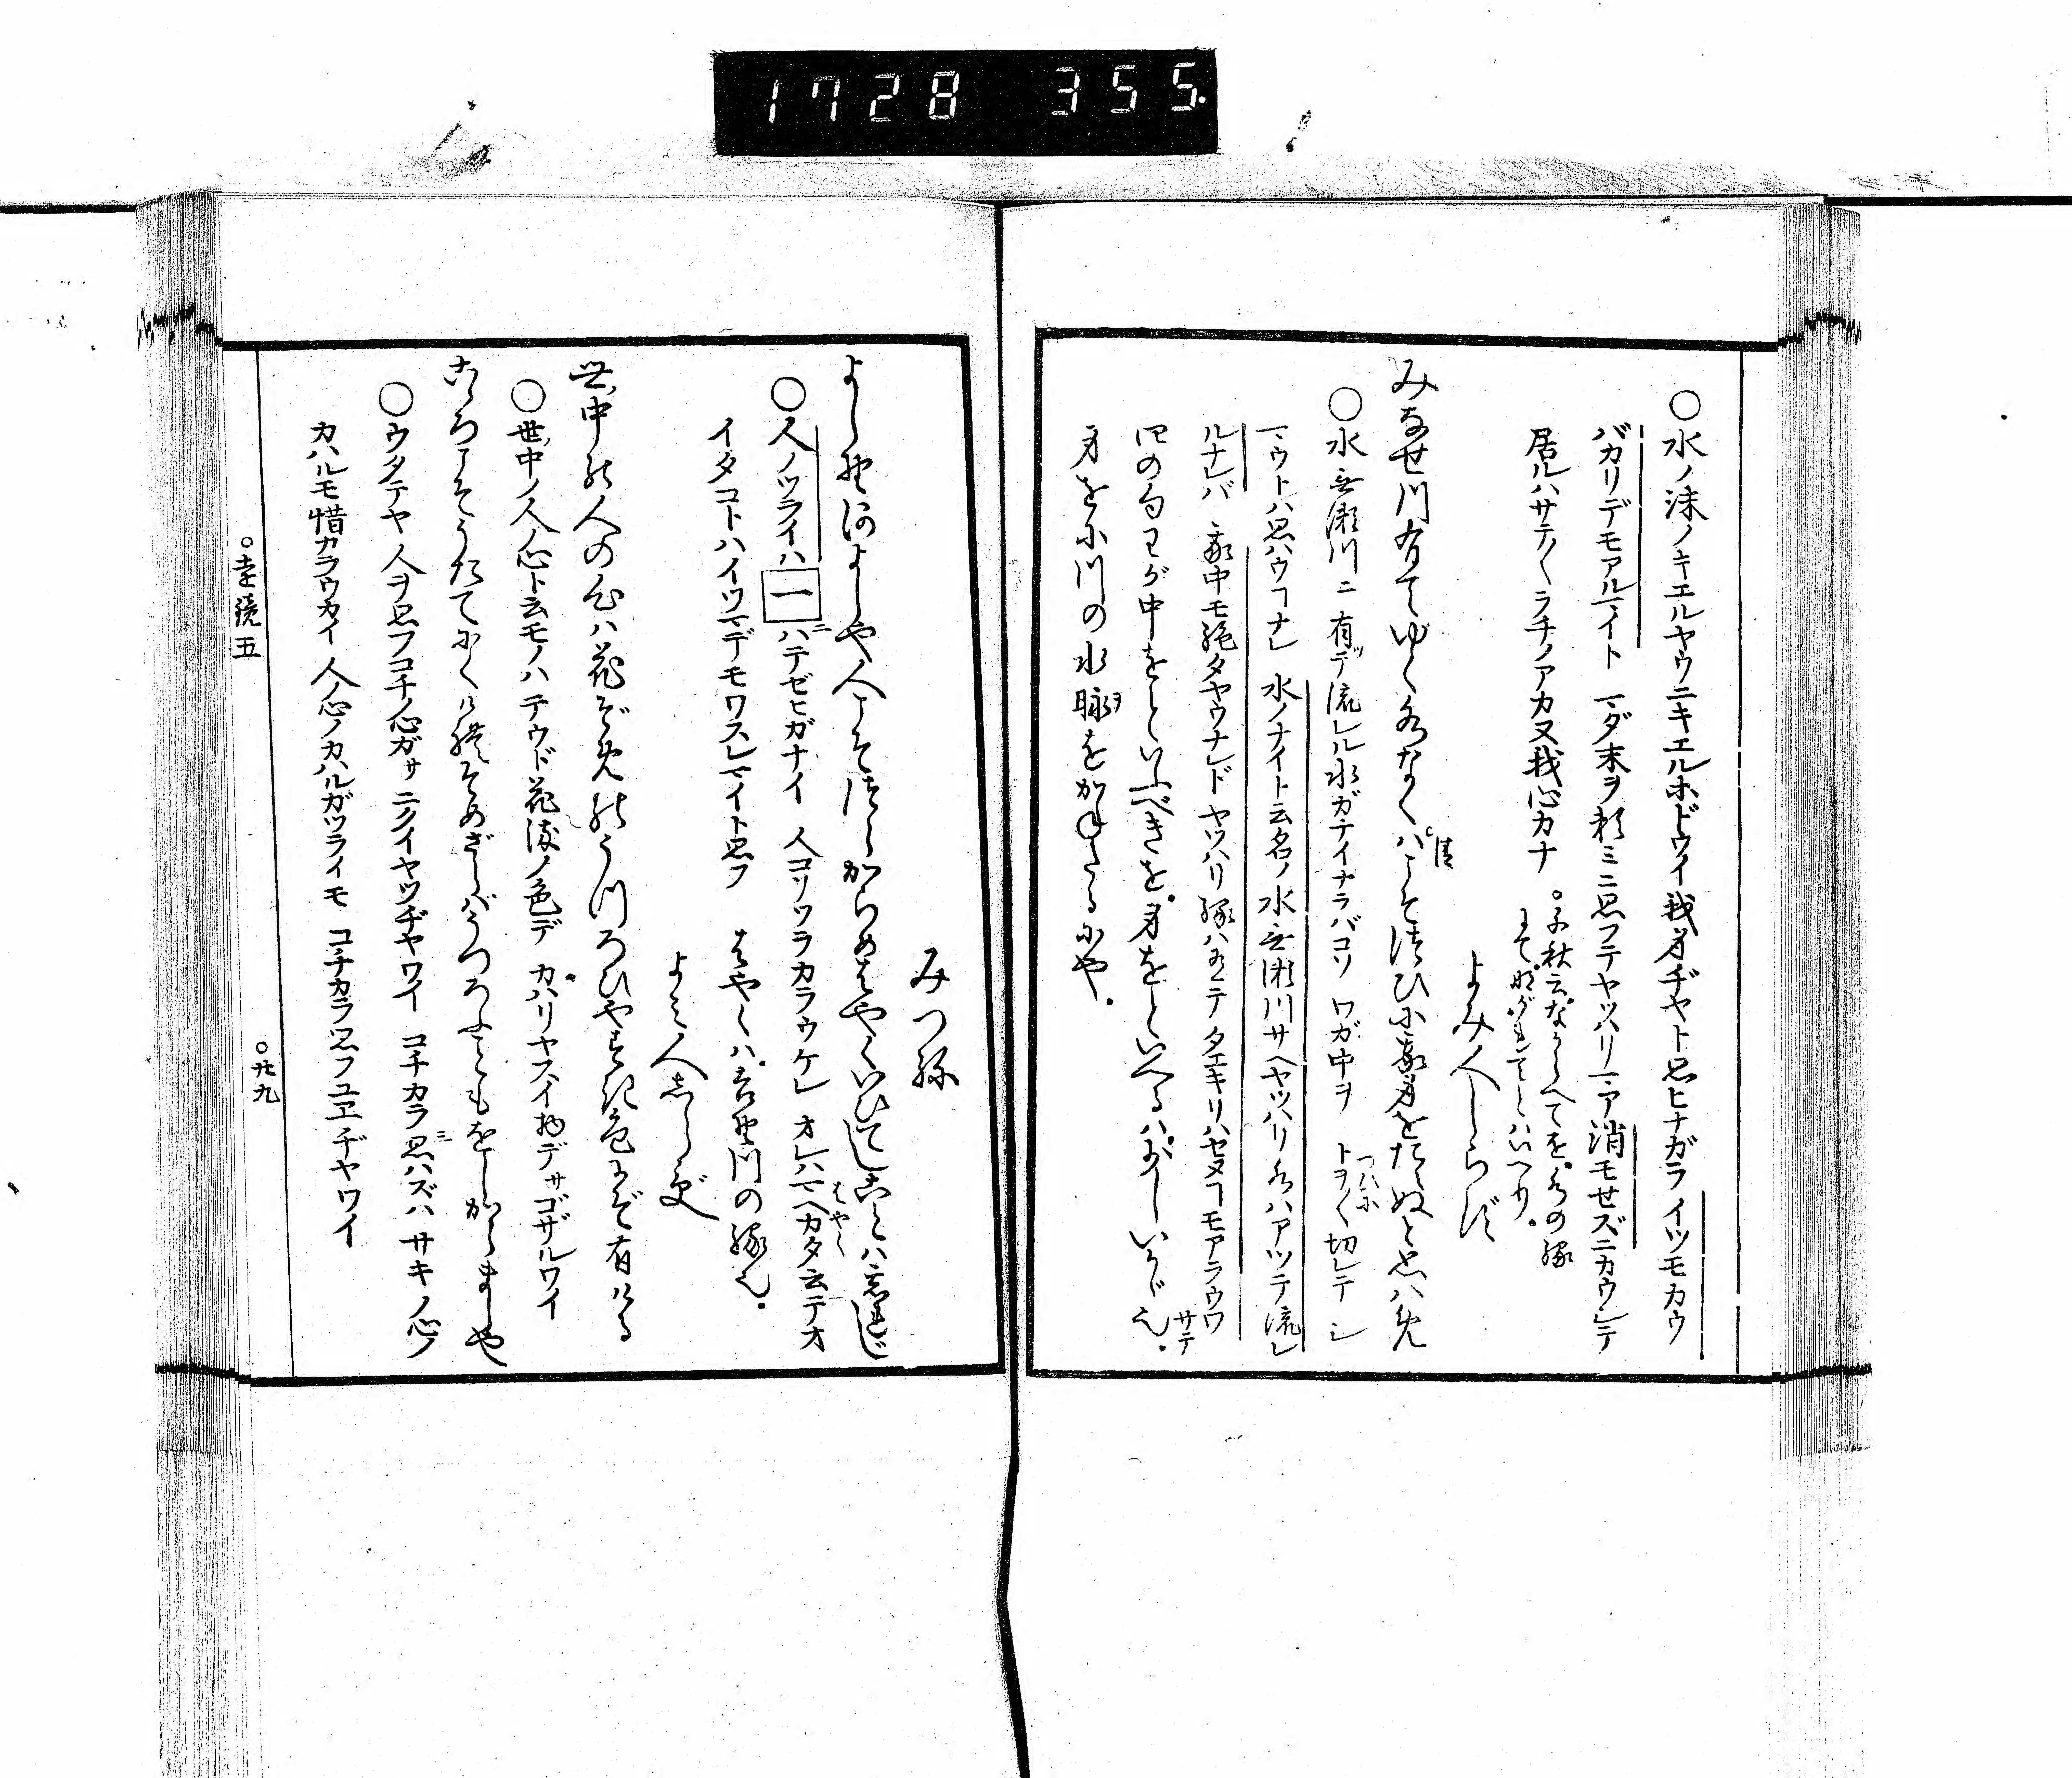 1728 355.
○水ノ沫ノキエルヤウニキエルホドウイ我身ヂヤト思ヒナガライツモカウ
バカリデモアルマイト マダ末ヲ頼ミニ思フテヤツハリマア消モセズニカウシテ
居ルハサテ〳〵ラチノアカヌ我心カナ
よみ人しらず
みなせ川有てゆく水なくばこそつひに我身をたえぬと思はめ
○水無瀬川ニ有ツテ流レル水ガナイナラバコソ ワガ中ヲ
マウトハ思ハウコナレ 水ノナイト云名ノ水無瀬川サヘヤツハリ水ハアツテ流レ
ルナレバ 我中モ絶タヤウナレド ヤツハリ縁ハ有テタエキリハセヌコモアラウワサテ
四の句わが中をといふべきを。身をといへるはおかしいかゞ也。
身を小川の水脉ヲをかねたるにや。
みつ称
よしの河よしや人こそつらからめはやくいひてしことは忘れじ
○人ノツライハ一ニハテゼヒガナイ 人コソツラカラウケレ オレハマヘカタ云テオ
イタコトハイツマデモワスレマイト思フ はやくは。吉野川の縁也。
よミ人志らず
世ノ中の人の心は花ぞめのうつろひやすき色にぞ有ける
○世ノ中ノ人ノ心ト云モノハ テウド花染ノ色デ カハリヤスイ物デサゴザルワイ
こゝろこそうたてにくけれ染ざらばうつろふこともをしからましや
○ウタテヤ 人ヲ思フコチノ心ガサ ニクイヤツヂヤワイ コチカラ思ハズハ サキノ心ノ
カハルモ惜カラウカイ 人ノ心ノカハルガツライモ コチカラ思フユヱヂヤワイ
○遠鏡五
○廿九